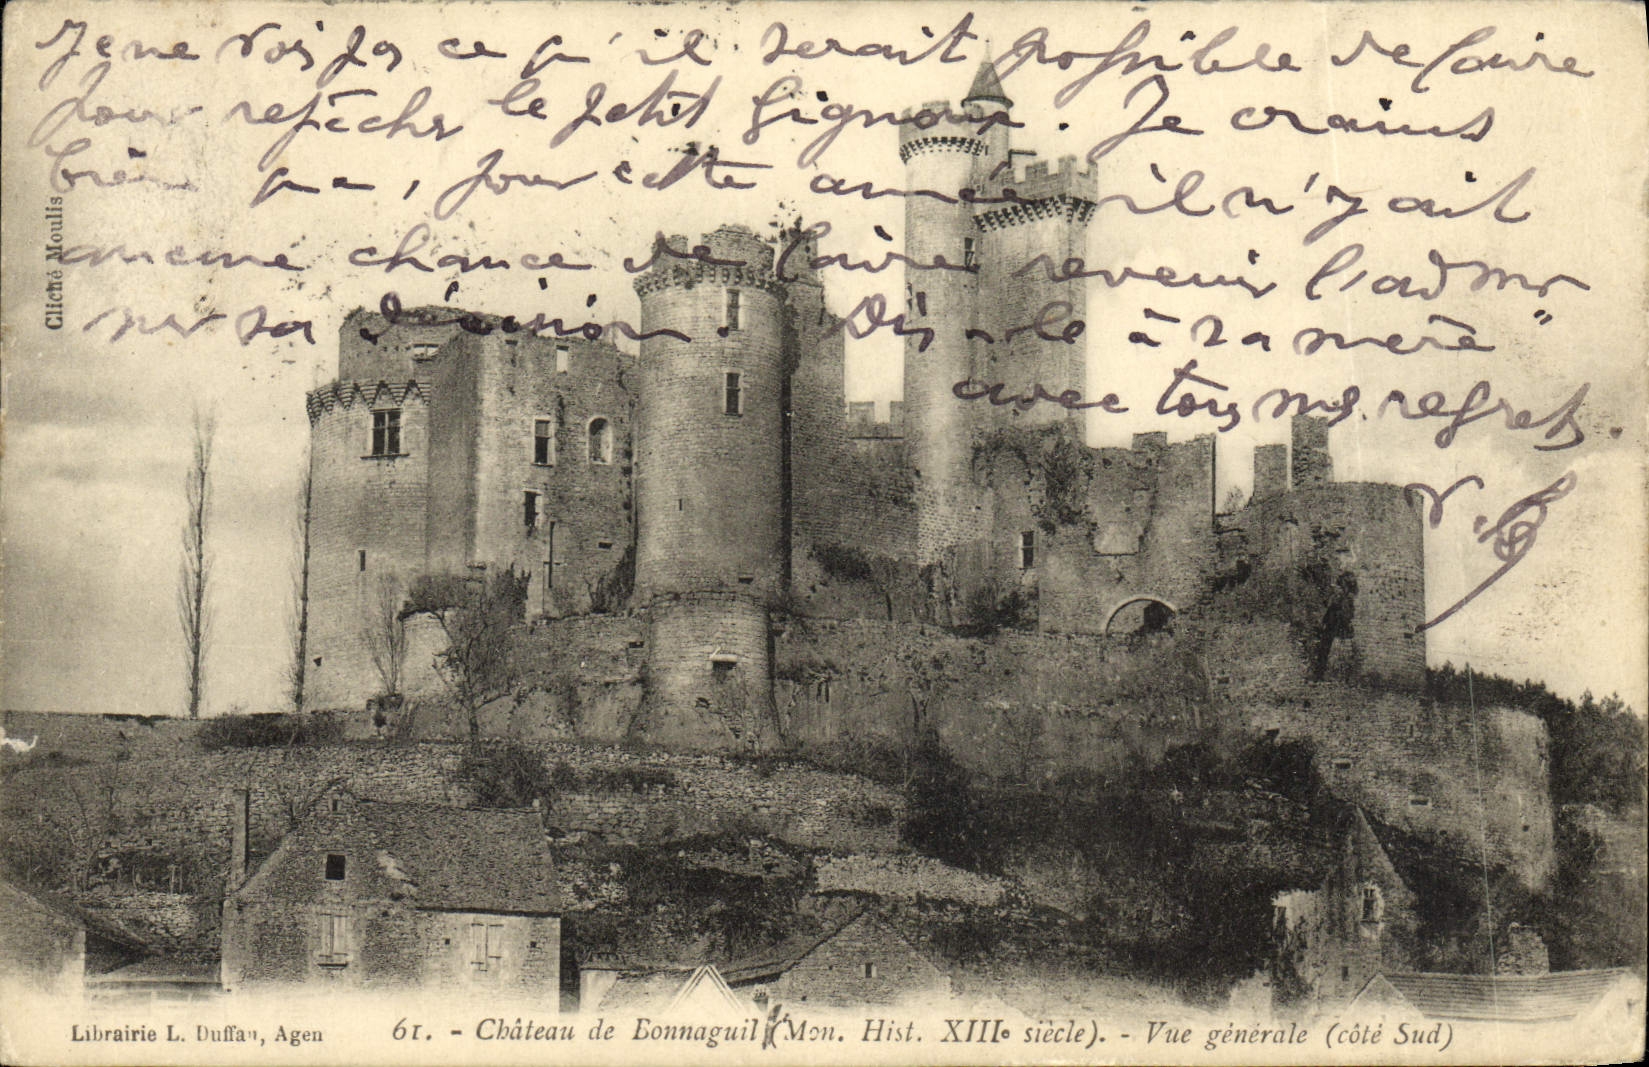 Je ne vois pas ce qu'il serait possible de faire
pour repêcher le petit Gignoux. Je crains
bien que, pour cette année il n'y ait
aucune chance de faire revenir l'admi
sur sa décision. Dis-le à sa mère
avec tous mes regrets.
Cliché Moulis
Librairie L. Duffau, Agen
61. - Château de Bonnaguil (Mon. Hist. XIIIe siècle). - Vue générale (côté Sud)